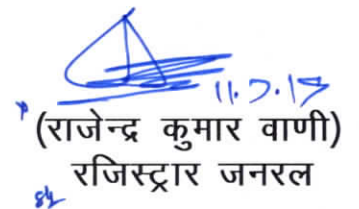 11.7.17
(राजेन्द्र कुमार वाणी)
रजिस्ट्रार जनरल